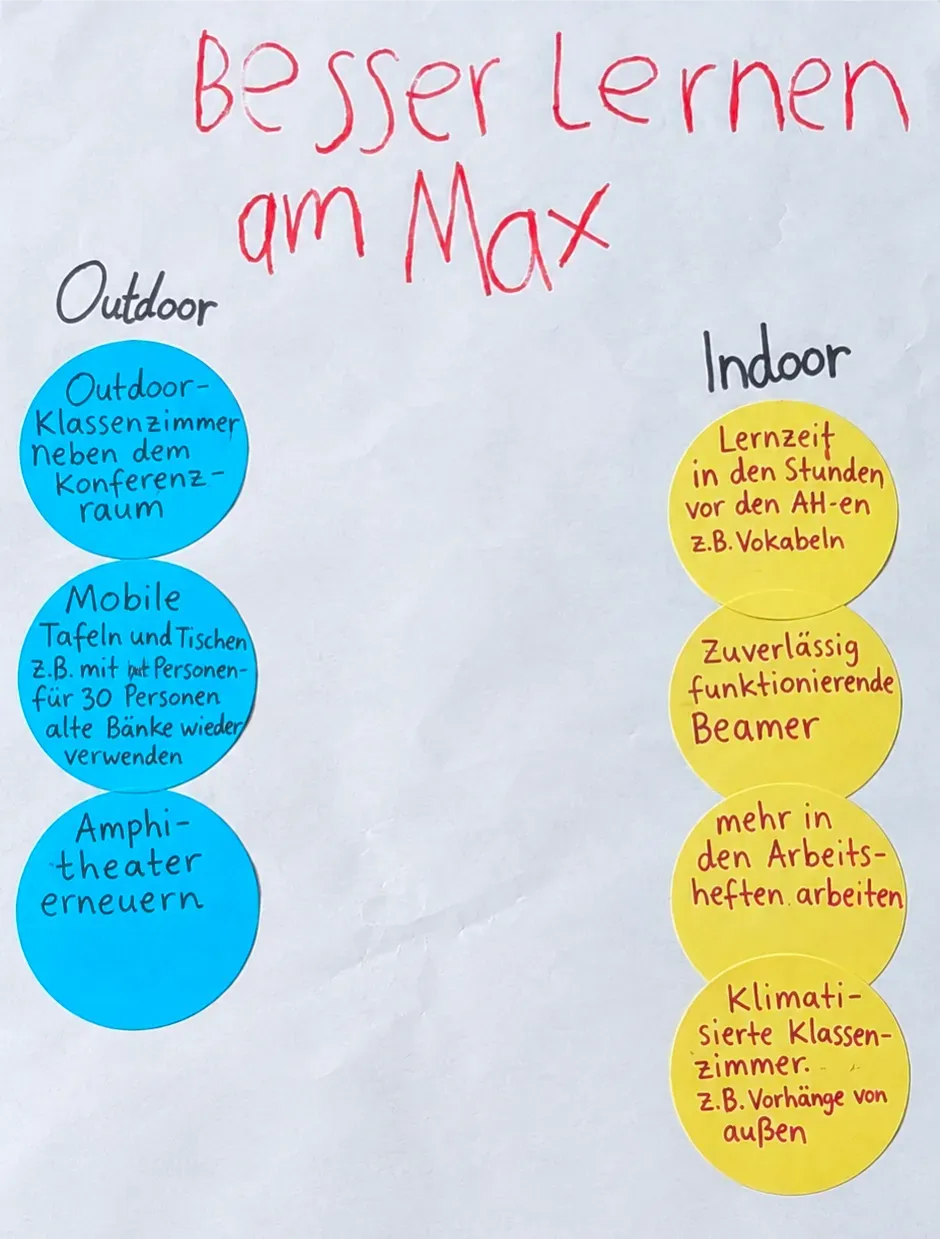 Besser Lernen
am Max
Outdoor
Outdoor-
Klassenzimmer
neben dem
Konferenz-
raum
Mobile
Tafeln und Tischen
z.B. mit Personen-
für 30 Personen
alte Bänke wieder
verwenden
Amphi-
theater
erneuern
Indoor
Lernzeit
in den Stunden
vor den AH-en
z.B. Vokabeln
Zuverlässig
funktionierende
Beamer
mehr in
den Arbeits-
heften arbeiten
Klimati-
sierte Klassen-
zimmer.
z.B. Vorhänge von
außen